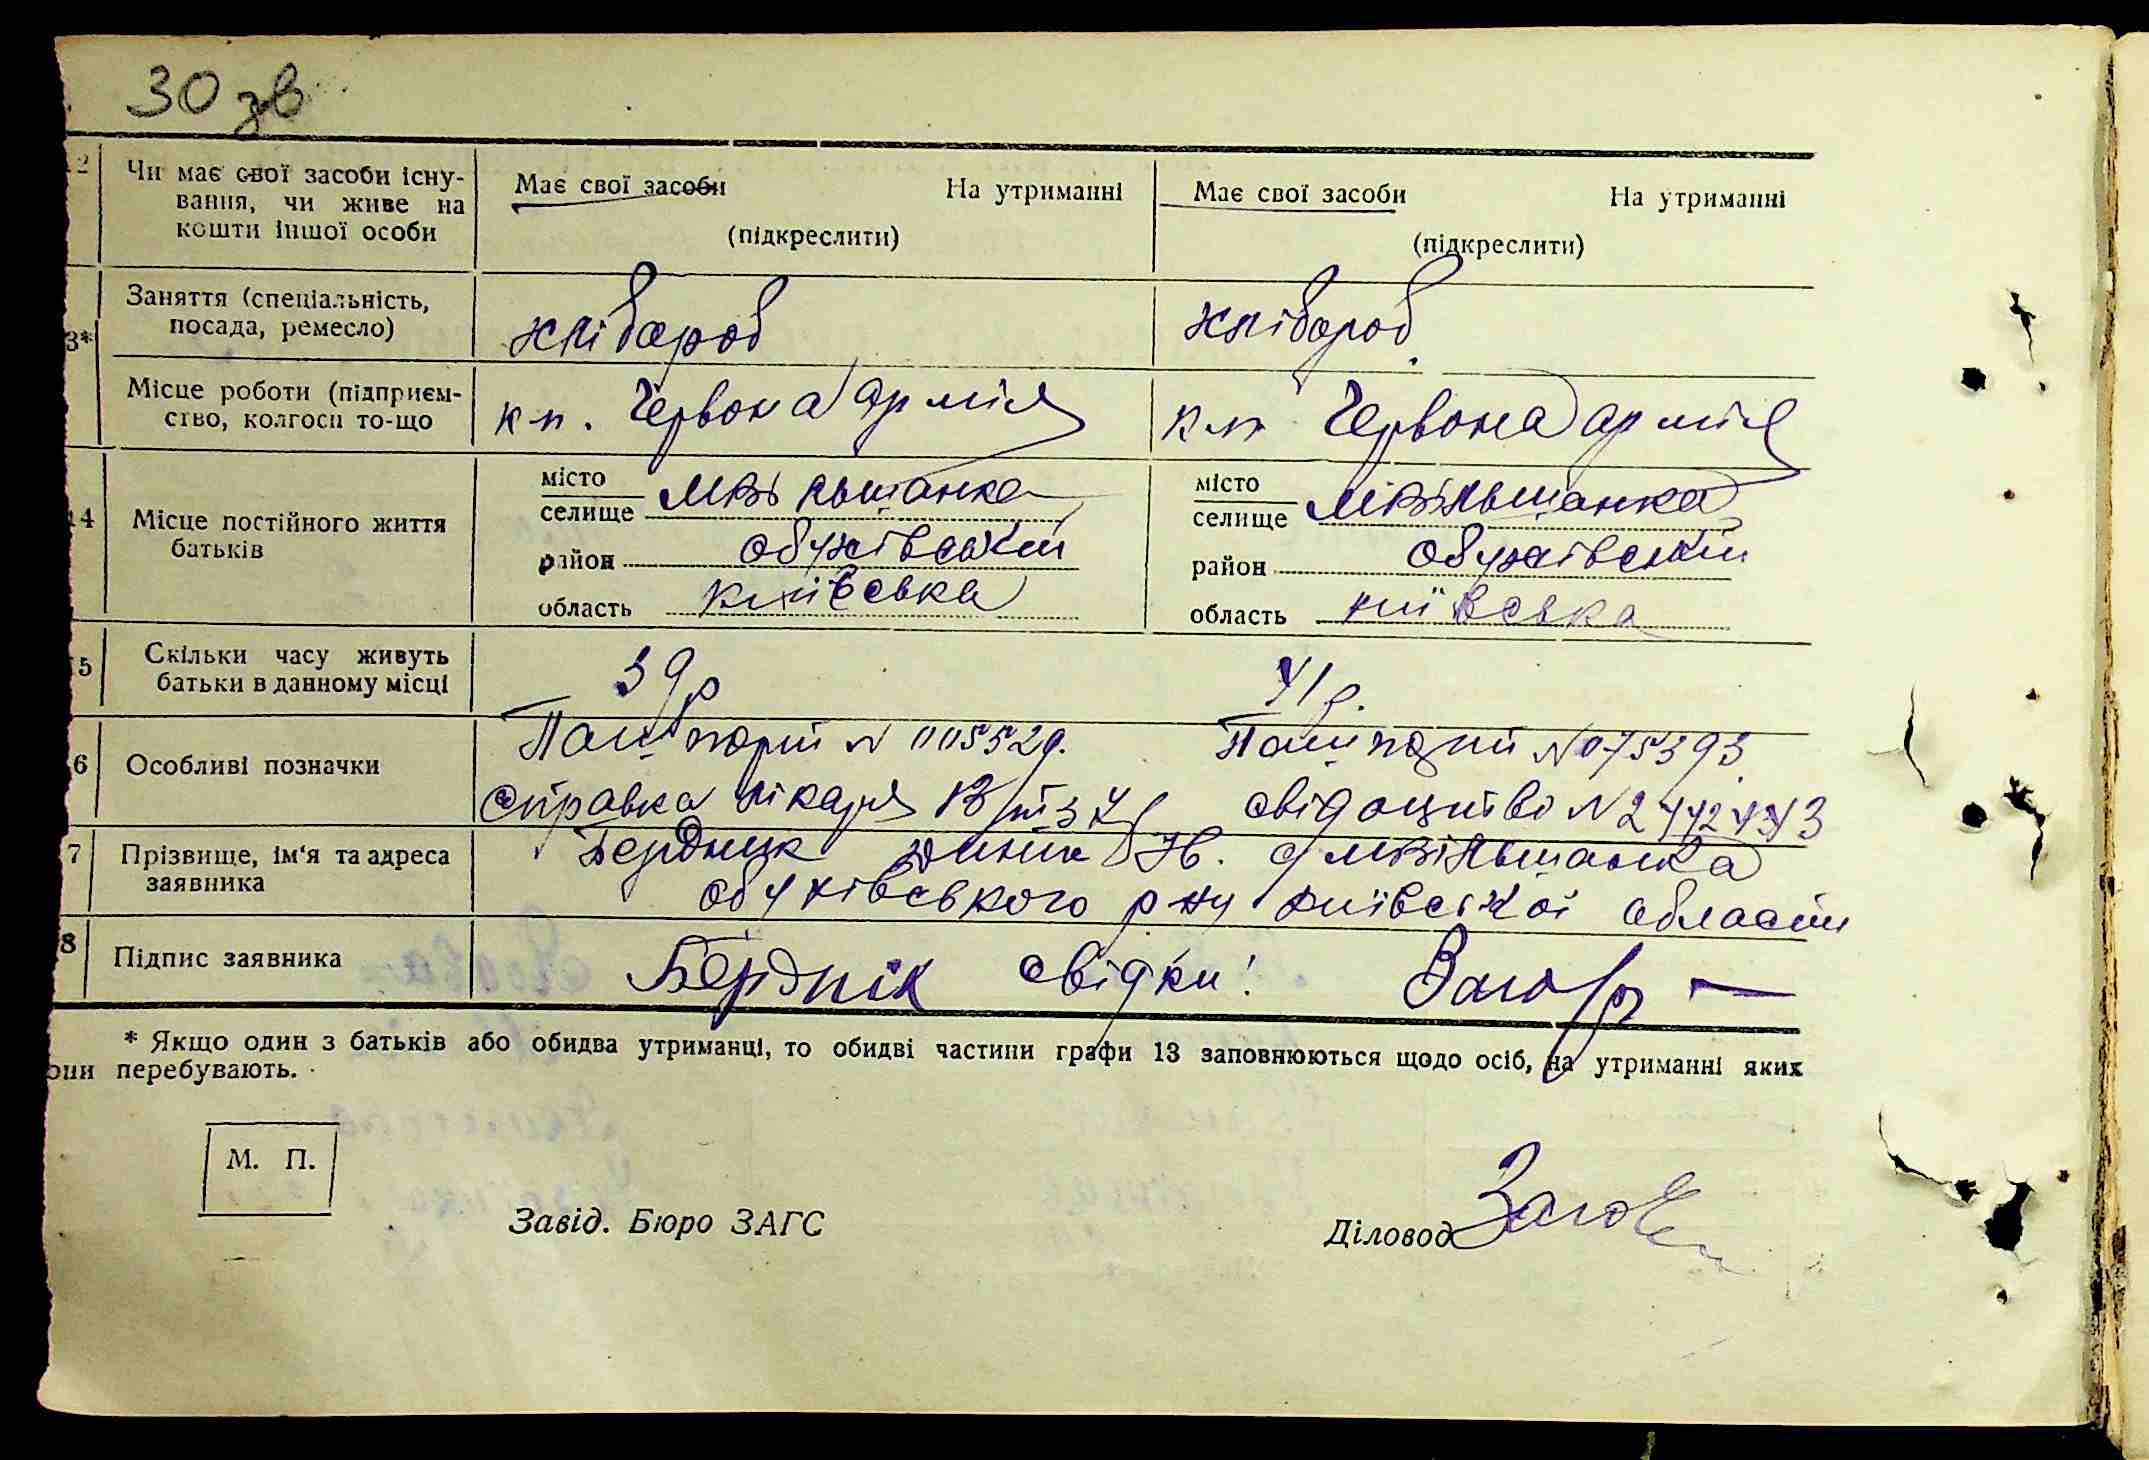 30 зв
12 Чи має свої засоби існу-
вання, чи живе на
кошти іншої особи
Має свої засоби На утриманні
(підкреслити)
Має свої засоби На утриманні
(підкреслити)
3* Заняття (спеціальність,
посада, ремесло)
хлібороб
хлібороб
Місце роботи (підприєм-
ство, колгосп то-що
к-п. Червона армія
к-п Червона армія
14 Місце постійного життя
батьків
місто
селище Мвільшанка
район обухівський
область київська
місто
селище Мвільшанка
район обухівський
область київська
5 Скільки часу живуть
батьки в данному місці
39 р
41 р.
6 Особливі позначки
Пашпорт N 005529.
справка лікаря
Пашпорт N 075393
свідоцтво N
7 Прізвище, ім‘я та адреса
заявника
Бердник с Мвільшанка
обухівського р ну київської области
8 Підпис заявника
Берднік свідки!
* Якщо один з батьків або обидва утриманці, то обидві частини графи 13 заповнюються щодо осіб, на утриманні яких
они перебувають.
М. П.
Завід. Бюро ЗАГС
Діловод